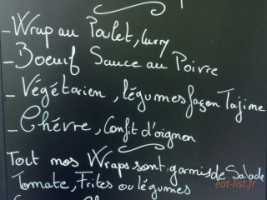 - Wrap au Poulet, curry
- Boeuf Sauce au Poivre
- Végétarien, légumes façon Tajine
- Chévre, Confit d'oignon
Tout nos Wraps sont garnis de Salade
Tomate, Frites ou légumes
eat-list.fr